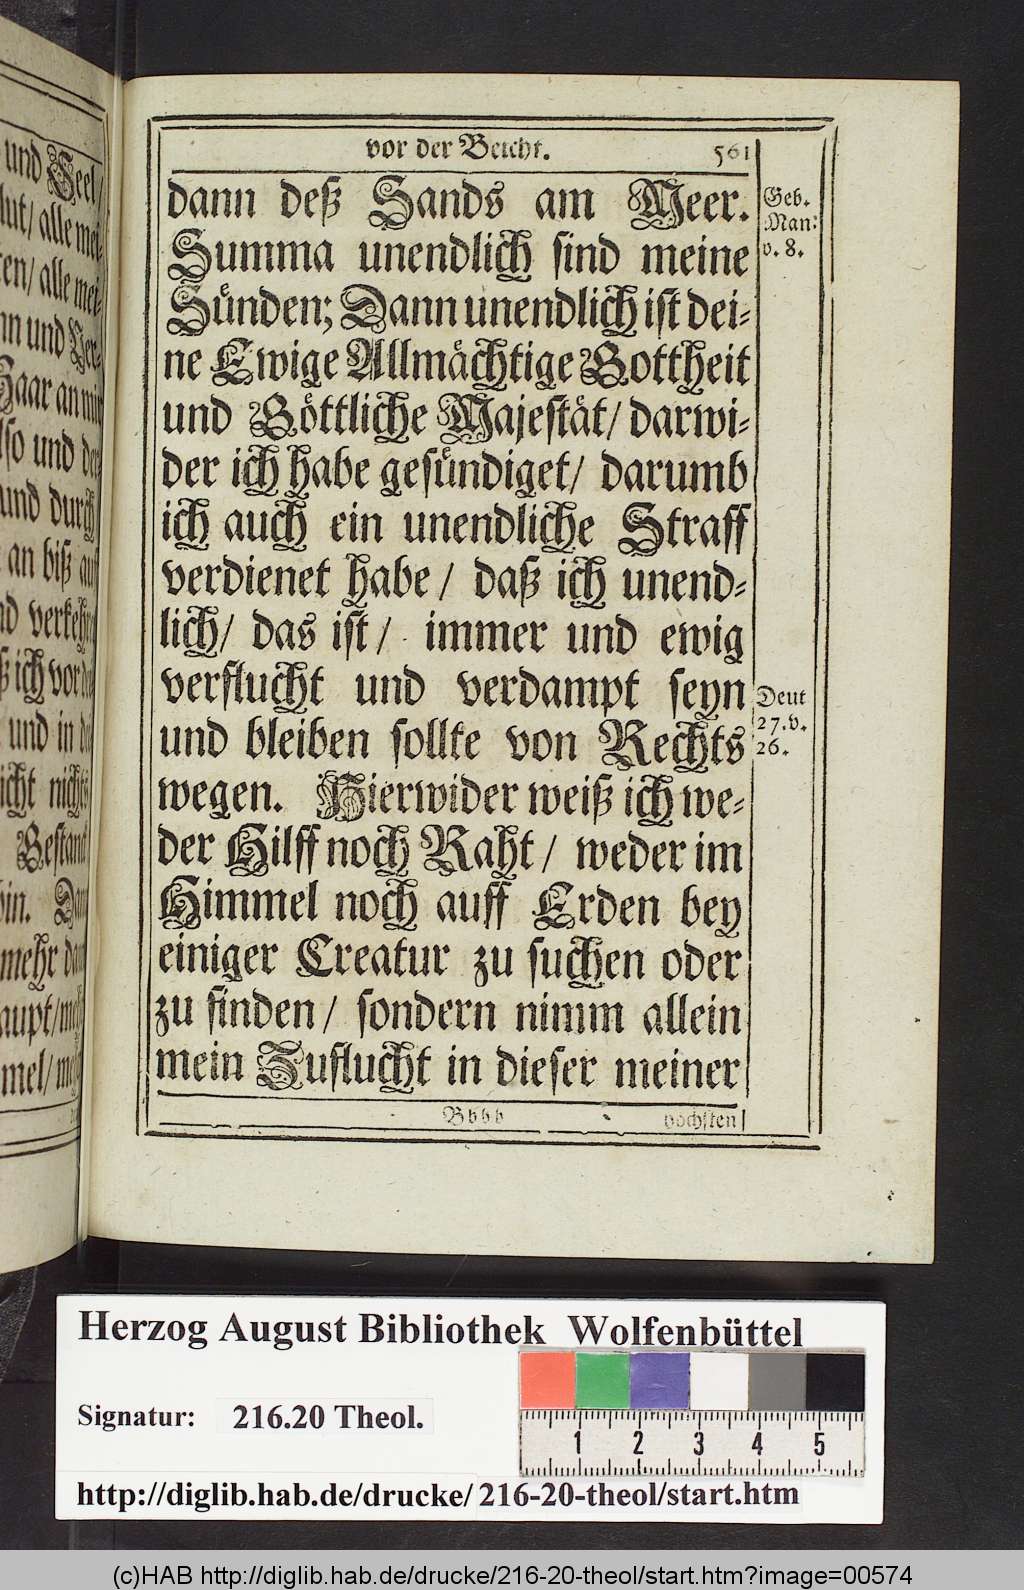 und Seel/
lut/ alle mei-
en/ alle mei-
nn und Ver-
Haar an mir
lso und der
und durch
an biß auf
nd verkehr
ß ich vor
und in
icht nichts
Bestand
bin. Dann
mehr dann
aupt/ mehr
mel/
vor der Beicht. 561
dann deß Sands am Meer.
Summa unendlich sind meine
Sünden; Dann unendlich ist dei-
ne Ewige Allmächtige Gottheit
und Göttliche Majestät/ darwi-
der ich habe gesündiget/ darumb
ich auch ein unendliche Straff
verdienet habe/ daß ich unend-
lich/ das ist/ immer und ewig
verflucht und verdampt seyn
und bleiben sollte von Rechts
wegen. Hierwider weiß ich we-
der Hilff noch Raht/ weder im
Himmel noch auff Erden bey
einiger Creatur zu suchen oder
zu finden/ sondern nimm allein
mein Zuflucht in dieser meiner
Bbbb höchsten
Geb.
Man:
v. 8.
Deut
27. v.
26.
Herzog August Bibliothek Wolfenbüttel
Signatur: 216.20 Theol.
1 2 3 4 5
http://diglib.hab.de/drucke/216-20-theol/start.htm
(c)HAB http://diglib.hab.de/drucke/216-20-theol/start.htm?image=00574